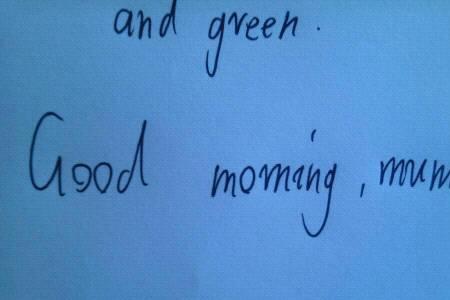 and green.
Good morning, mum